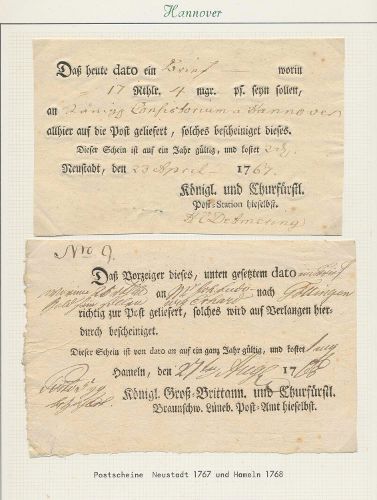 Hannover
Daß heute dato ein Brief worin
17 Rthlr. 4 mgr. pf. seyn sollen,
an Königl Consistorium a Hannover
allhier auf die Post geliefert, solches bescheiniget dieses.
Dieser Schein ist auf ein Jahr gültig, und kostet
Neustadt, den 23 April 1767.
Königl. und Churfürstl.
Post-Station hieselbst.
Nro 9.
Daß Vorzeiger dieses, unten gesetztem dato
an nach Göttingen
richtig zur Post geliefert, solches wird auf Verlangen hier-
durch bescheiniget.
Dieser Schein ist von dato an auf ein ganz Jahr gültig, und kostet 1 mg
Hameln, den 27ten 1768
Königl. Groß-Brittann. und Churfürstl.
Braunschw. Lüneb. Post-Amt hieselbst.
Postscheine Neustadt 1767 und Hameln 1768